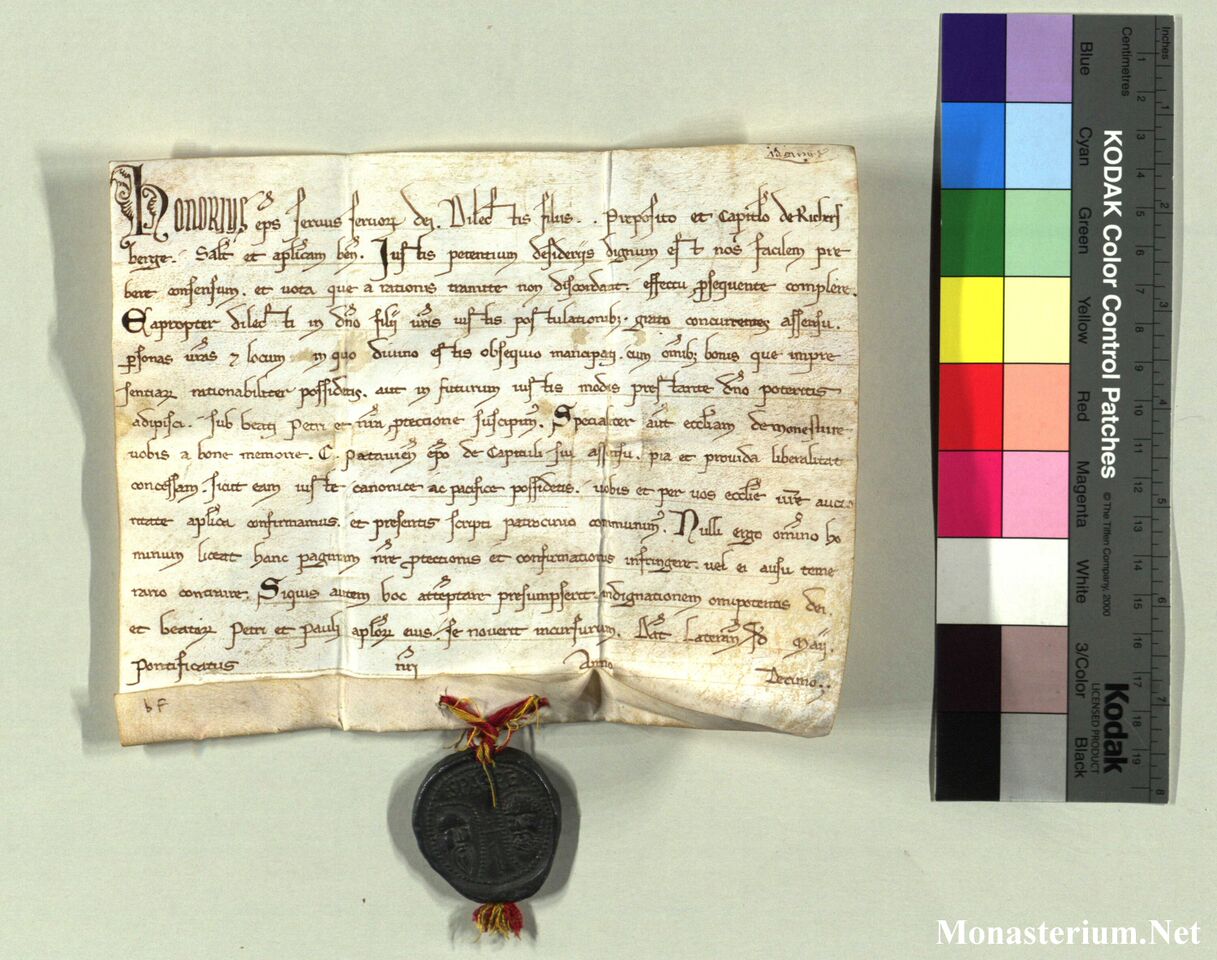 Honorius eps seruus seruoꝝ dei. Dilectis filiis .. Preposito et Capitlo de Richers
berge. Salt et aplicam ben. Iustis petentium desideriis dignum est nos facilem pre
bere consensum. et uota que a rationis tramite non discordant. effectu ꝓsequente complere.
Eapropter dilecti in dno filii uris iustis postulationibꝫ grato concurrentes assensu.
ꝑsonas uras ⁊ locum in quo diuino estis obsequio mancipati. cum omibꝫ bonis que impre
sentiaꝝ rationabiliter possidetis. aut in futurum iustis modis prestante dno poteritis
adipisci. sub beati Petri et nra ꝓtectione suscipim. Specialiter aut eccliam de Monesture
uobis a bone memorie. C. Patauien epo de Capituli sui assensu. pia et prouida liberalitate
concessam. sicut eam iuste canonice ac pacifice possidetis. uobis et per uos ecclie ure aucto
ritate aplica confirmamus. et presentis scripti patrocinio communim. Nulli ergo omnino ho
minum liceat hanc paginam nre ꝓtectionis et confirmationis infringere. uel ei ausu teme
rario contraire. Siquis autem hoc attemptare presumpserit. indignationem omnipotentis dei.
et beatoꝝ Petri et Pauli aploꝝ eius / se nouerit incursurum. Dat Lateran Id Maii.
Pontificatus nri Anno Decimo..
b f
KODAK Color Control Patches
© The Tiffen Company, 2000
Kodak
LICENSED PRODUCT
Blue Cyan Green Yellow Red Magenta White 3/Color Black
Inches
1 2 3 4 5 6 7 8
Centimetres
1 2 3 4 5 6 7 8 9 10 11 12 13 14 15 16 17 18 19
Monasterium.Net